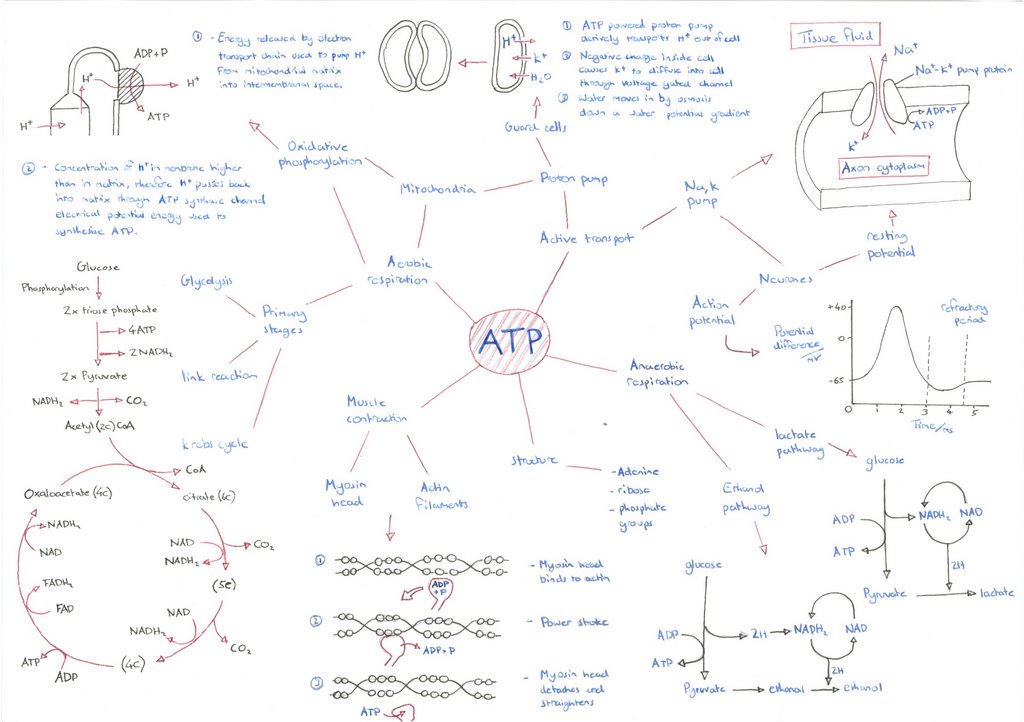 ① - Energy released by electron
transport chain used to pump H⁺
from mitochondrial matrix
into intermembranal space.
ADP+P
H⁺
H⁺
ATP
H⁺
② - Concentration of H⁺ in membrane higher
than in matrix, therefore H⁺ passes back
into matrix through ATP synthase channel
electrical potential energy used to
synthesise ATP.
Oxidative
phosphorylation
Mitochondria
Aerobic
respiration
H⁺
K⁺
H₂O
① ATP powered proton pump
actively transports H⁺ out of cell
② Negative charge inside cell
causes K⁺ to diffuse into cell
through voltage gated channel
③ Water moves in by osmosis
down a water potential gradient
Guard cells
Proton pump
Active transport
Na,K
pump
Tissue fluid
Na⁺
Na⁺-K⁺ pump protein
ADP+P
ATP
K⁺
Axon cytoplasm
resting
potential
Neurones
Action
potential
Potential
difference
/mV
+40
0
-65
refractory
period
0
1
2
3
4
5
Time/ms
ATP
Primary
stages
Glycolysis
link reaction
krebs cycle
Glucose
Phosphorylation
2x triose phosphate
4ATP
2NADH₂
2x Pyruvate
NADH₂
CO₂
Acetyl(2c)CoA
CoA
Oxaloacetate(4c)
citrate(6c)
NADH₂
NAD
NAD
NADH₂
CO₂
(5c)
FADH₂
FAD
NAD
NADH₂
CO₂
(4c)
ATP
ADP
Muscle
contraction
Myosin
head
Actin
filaments
①
- Myosin head
binds to actin
ADP
+P
②
- Power stroke
ADP+P
③
- Myosin head
detaches and
straightens
ATP
structure
- Adenine
- ribose
- phosphate
groups
Anaerobic
respiration
lactate
pathway
glucose
ADP
ATP
NADH₂
NAD
2H
Pyruvate
lactate
Ethanol
pathway
glucose
ADP
ATP
2H
NADH₂
NAD
2H
Pyruvate
ethanol
ethanol